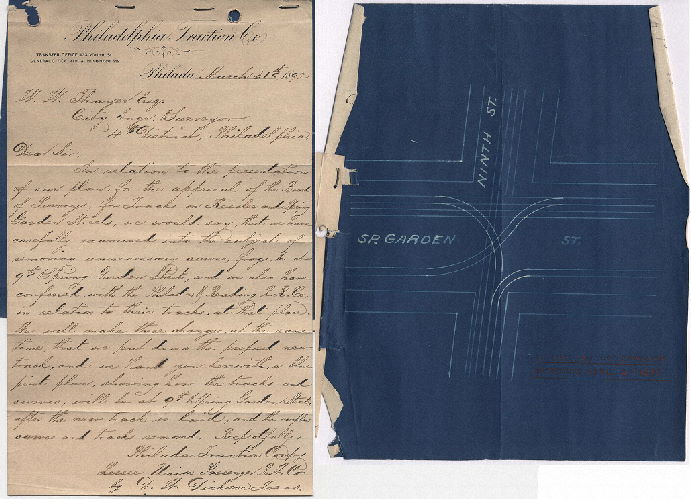 Philadelphia Traction Co.
Philada. March 1895
W. W. Thayer Esq.
City Engr. Surveyor
4th District, Philadelphia
Dear Sir,
In relation to the presentation
of our plan, for the approval of the Board
of Surveyors, for tracks on and Spring
Garden Streets, we would say, that we have
carefully into the subject of
removing unnecessary curves, frogs, &c. at
9th & Spring Garden Streets, and we also have
conferred with the Philad. & Reading R.R. Co.
in relation to their tracks at that place
this will make these changes, at the same
time, that we put down the proposed new
track, and we hand you herewith, a blue
print plan, showing how the tracks and
curves, will be at 9th & Spring Garden Streets,
after the new track is laid, and the
curves and tracks removed. Respectfully,
Philada Traction Company
Lessee Union Passenger Ry. Co.
by
NINTH ST.
SP. GARDEN ST.